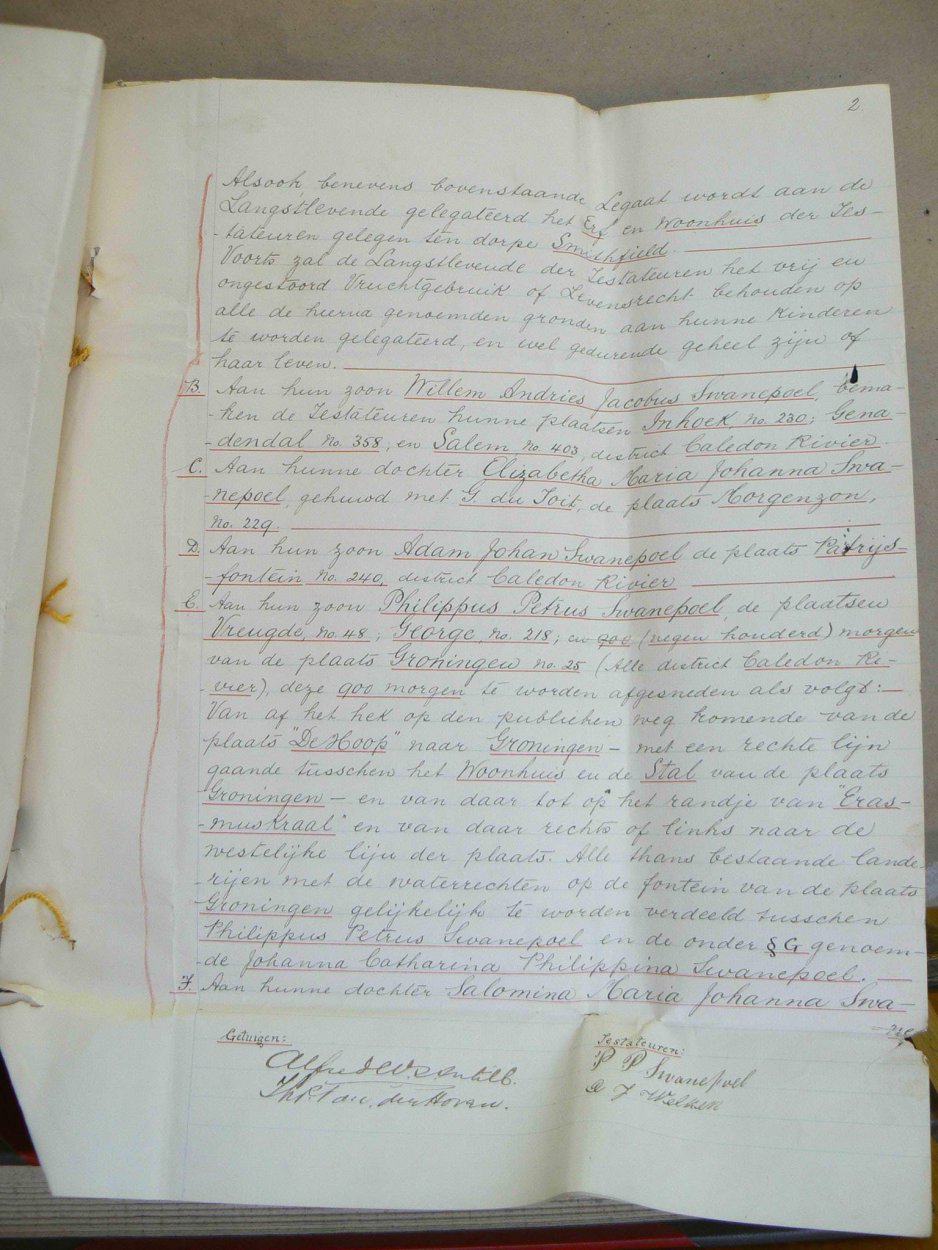 2
Alsook, benevens bovenstaande Legaat wordt aan de
Langstlevende gelegateerd het Erf en Woonhuis der Tes-
-tateuren gelegen ten dorpe Smithfield.
Voorts zal de Langstlevende der Testateuren het vrij en
ongestoord Vruchtgebruik of Levensrecht behouden op
alle de hierna genoemden gronden aan hunne Kinderen
te worden gelegateerd, en wel gedurende geheel zijn of
haar leven.
B. Aan hun zoon Willem Andries Jacobus Swanepoel, bema-
-ken de Testateuren hunne plaatsen Inhoek, No. 230; Gena-
-dendal No. 358, en Salem No. 403, district Caledon Rivier.
C. Aan hunne dochter Elizabetha Maria Johanna Swa-
-nepoel, gehuwd met G du Toit, de plaats Morgenzon,
No. 229.
D. Aan hun zoon Adam Johan Swanepoel de plaats Patrijs-
-fontein, No. 240, district Caledon Rivier
E. Aan hun zoon Philippus Petrus Swanepoel, de plaatsen
Vreugde, No. 48; George, No. 218; en 900 (negen honderd) morgen
van de plaats Groningen No. 25 (Alle district Caledon Ri-
-vier), deze 900 morgen te worden afgesneden als volgt:—
Van af het hek op den publieken weg komende van de
plaats "De Hoop" naar Groningen — met een rechte lijn
gaande tusschen het Woonhuis en de Stal van de plaats
Groningen — en van daar tot op het randje van "Eras-
-muskraal" en van daar rechts of links naar de
westelijke lijn der plaats. Alle thans bestaande lande-
-rijen met de waterrechten op de fontein van de plaats
Groningen gelijkelijk te worden verdeeld tusschen
Philippus Petrus Swanepoel en de onder § G genoem-
-de Johanna Catharina Philippina Swanepoel.
F. Aan hunne dochter Salomina Maria Johanna Swa-
Getuigen:
Testateuren:
P P Swanepoel
der Hoven.